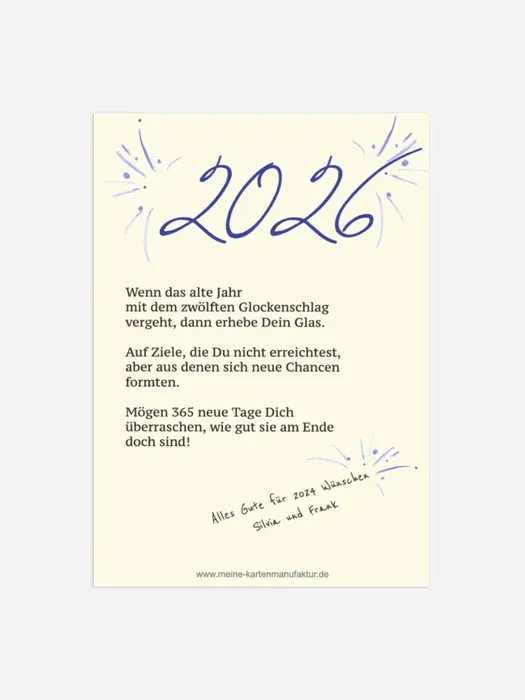 2026
Wenn das alte Jahr
mit dem zwölften Glockenschlag
vergeht, dann erhebe Dein Glas.
Auf Ziele, die Du nicht erreichtest,
aber aus denen sich neue Chancen
formten.
Mögen 365 neue Tage Dich
überraschen, wie gut sie am Ende
doch sind!
Alles Gute für 2024 Wünschen
Silvia und Frank
www.meine-kartenmanufaktur.de